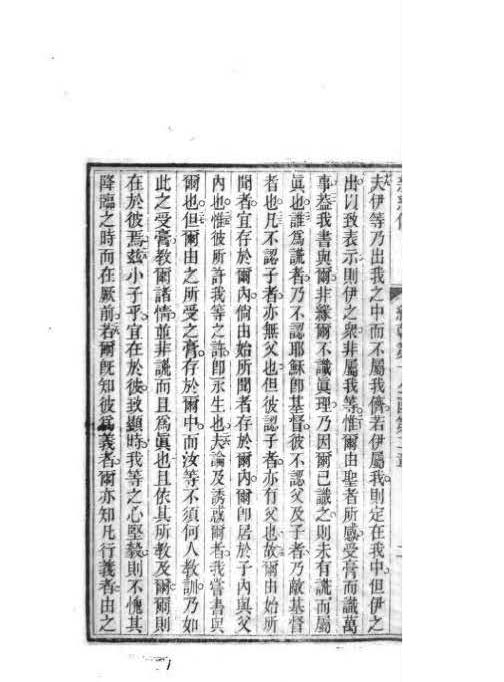 夫伊等乃出我之中而不屬我儕若伊屬我則定在我中但伊之
出以致表示則伊之衆非屬我等惟爾由聖者所感受膏而識萬
事葢我書與爾非緣爾不識眞理乃因爾已識之則未有謊而屬
眞也誰爲謊者乃不認耶穌卽基督彼不認父及子者乃敵基督
者也凡不認子者亦無父也但彼認子者亦有父也故爾由始所
聞者宜存於爾內倘由始所聞者存於爾內爾卽居於子內與父
內也惟彼所許我等之許卽永生也夫論及誘惑爾者我嘗書與
爾也但爾由之所受之膏存於爾中而汝等不須何人教訓乃如
此之受膏教爾諸情並非謊而且爲眞也且依其所教及爾爾則
在於彼焉茲小子乎宜在於彼致顯時我等之心堅毅則不愧其
降臨之時而在厥前若爾既知彼爲義者爾亦知凡行義者由之